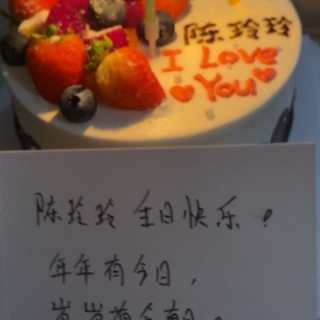 陈玲玲
I Love
You
陈玲玲 生日快乐!
年年有今日,
岁岁有今朝。